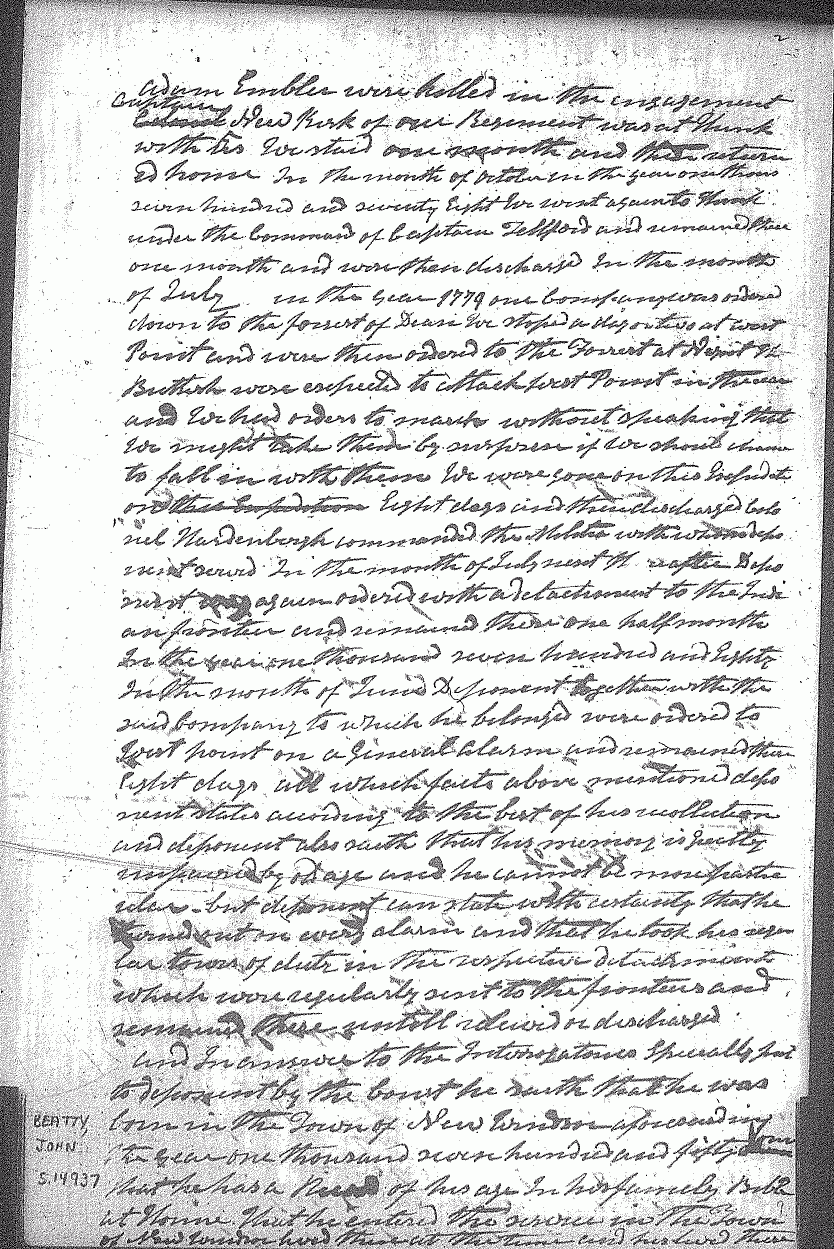 2
Adam Embler were killed in the engagement
Captain
Colonel New Kirk of our Regiment was at Hunk
with us We staid one month and then return
ed home In the month of October in the year one thous
seven hundred and seventy Eight We went again to Hunk
under the Command of Captain Tellford and remained there
one month and were then discharged In the month
of July in the year 1779 our Company was ordered
down to the forrest of Dean We stoped a day or two at west
Point and were then ordered to the Forrest at Night
Brittish were expected to attack west Point in the rear
and We had orders to march without speaking that
We might take them by surprise if We should chance
to fall in with them We were gone on this Expedite
on this Expedition Eight days and then discharged Colo
nel Hardenbergh commanded the Militia with whom depo
nent served In the month of July next after Depo
nent was again ordered with a detachment to the Indi
an frontier and remained there one half month
In the year one thousand seven hundred and Eighty
In the month of June Deponent together with the
said Company to which he belonged were ordered to
West point on a General Alarm and remained there
Eight days all which facts above mentioned depo
nent states according to the best of his recollection
and deponent also saith that his memory is greatly
impaired by old age and he cannot be more partic
ular but deponent can state with certainty that he
turned out on every alarm and that he took his regu
lar tours of duty in the respective detachments
which were regularly sent to the frontiers and
remained there untill relieved or discharged
and In answer to the Interrogatories Specially put
to deponent by the Court he saith that he was
born in the Town of New Windsor aforesaid in
the year one thousand seven hundred and fifty four
that he has a Record of his age In his family Bible
at Home That he entered the service in the Town
of New Windsor lived there at the time and resided there
BEATTY,
JOHN
S.14937